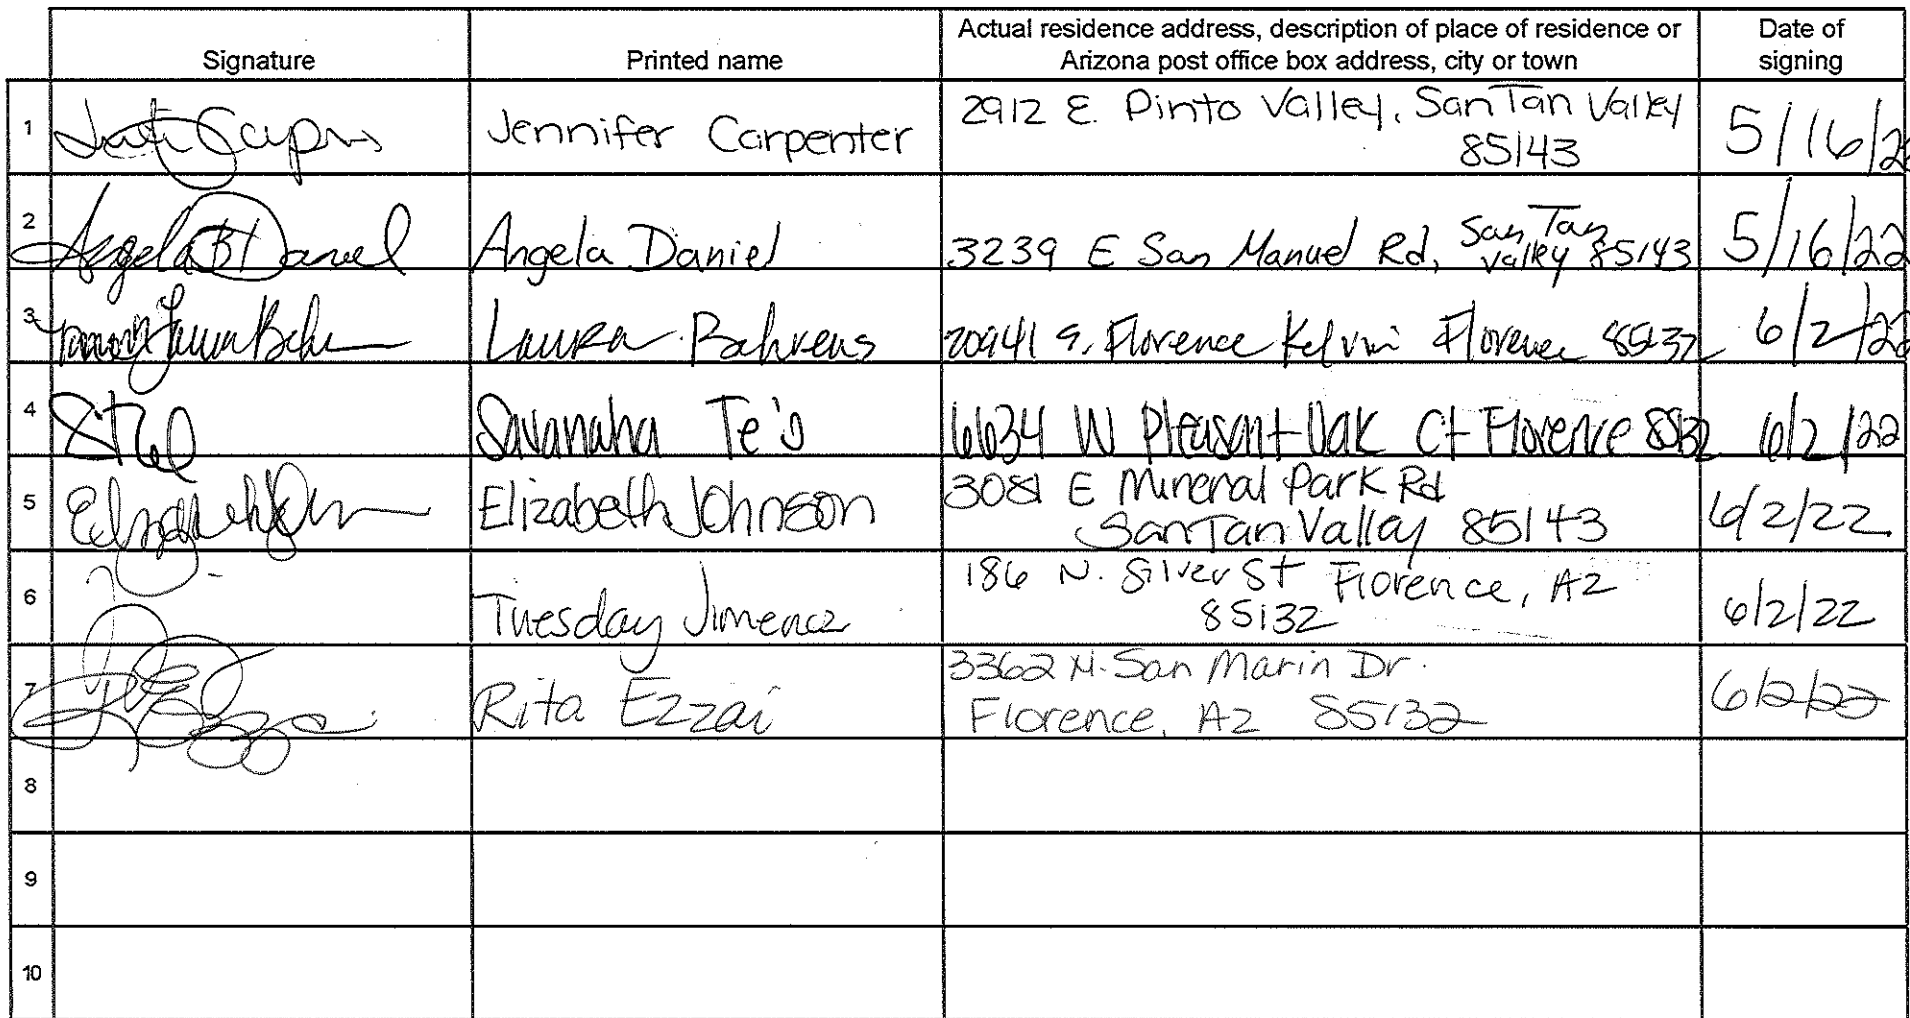 Signature Printed name Actual residence address, description of place of residence or Arizona post office box address, city or town Date of signing
1 Jennifer Carpenter 2912 E. Pinto Valley, San Tan Valley 85143 5/16/22
2 Angela B Daniel Angela Daniel 3239 E San Manuel Rd, San Tan Valley 85143 5/16/22
3 Laura Bahrens 20941 S. Florence Kelvin Florence 85132 6/2/22
4 Savanaha Te'o 6634 W Pleasant Oak Ct Florence 85132 6/2/22
5 Elizabeth Johnson 3081 E Mineral Park Rd San Tan Valley 85143 6/2/22
6 Tuesday Jimenez 186 N. Silver St Florence, AZ 85132 6/2/22
7 Rita Ezzai 3362 N. San Marin Dr. Florence, AZ 85132 6/2/22
8
9
10